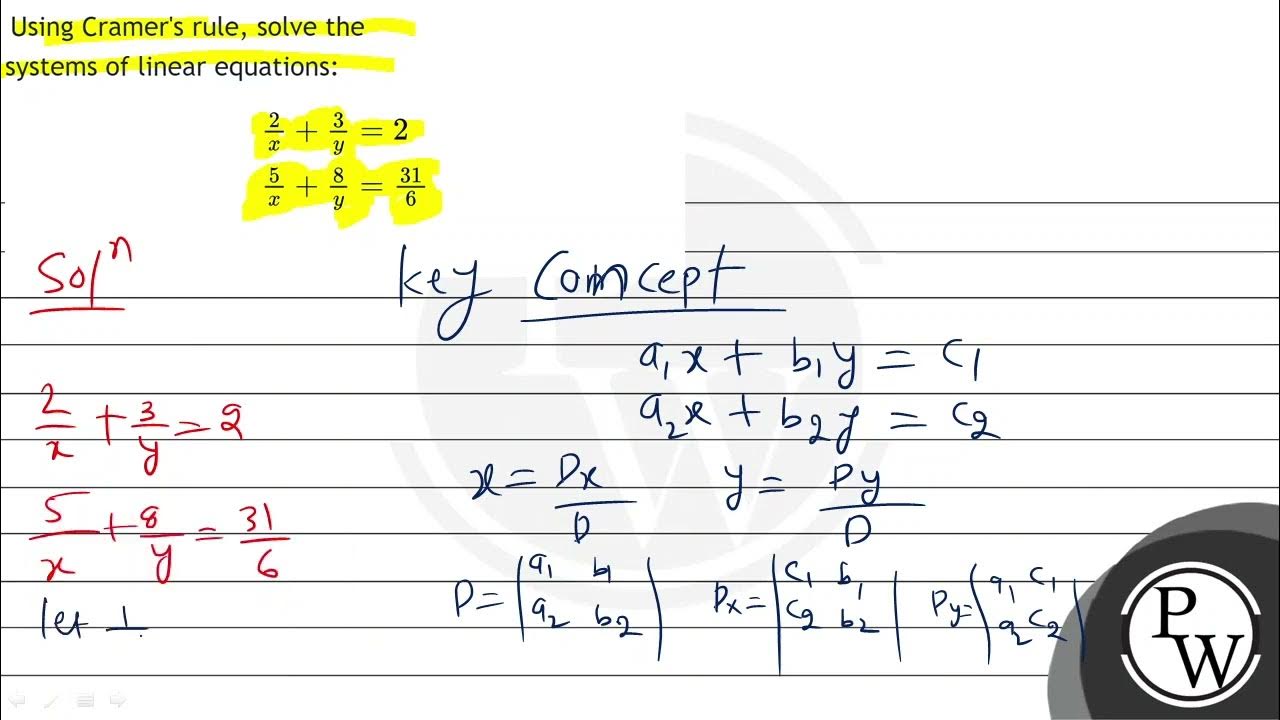 Using Cramer's rule, solve the
systems of linear equations:
2/x + 3/y = 2
5/x + 8/y = 31/6
Solⁿ
Key Comcept
a₁x + b₁y = c₁
a₂x + b₂y = c₂
2/x + 3/y = 2
x = Dx/D y = Dy/D
5/x + 8/y = 31/6
D = |a₁ b₁ Dx = |c₁ b₁ Dy = |a₁ c₁
a₂ b₂| c₂ b₂| a₂ c₂|
let 1/
PW